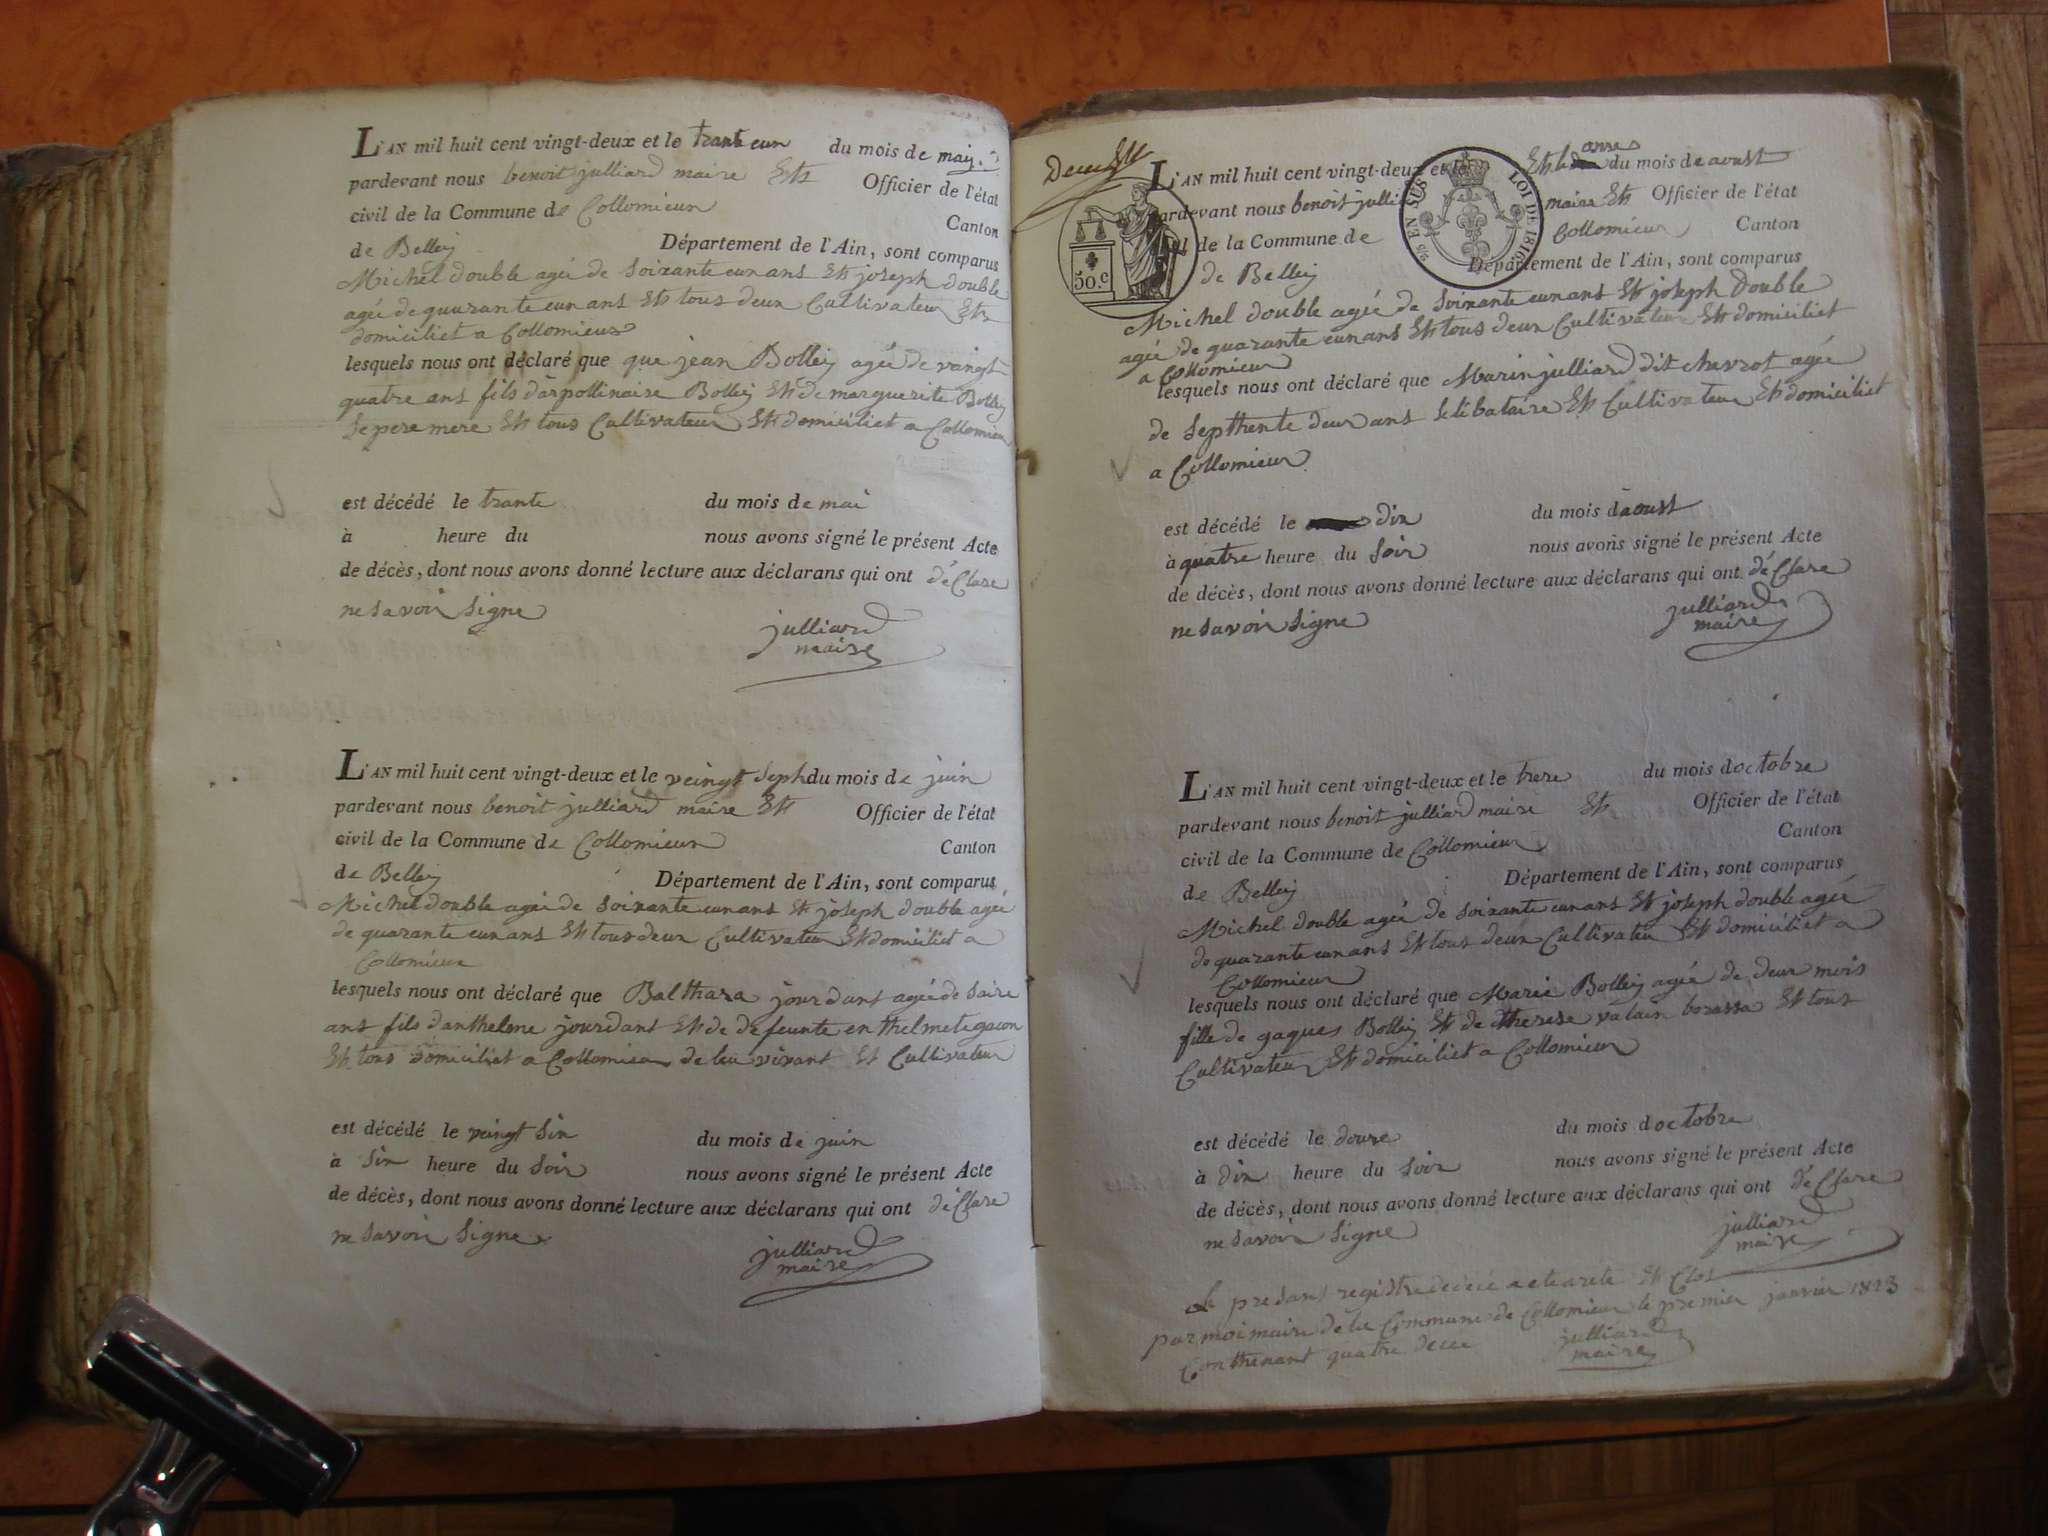 L'AN mil huit cent vingt-deux et le trante eun du mois de maiy
pardevant nous benoit julliard maire Et Officier de l'état
civil de la Commune de Collomieux Canton
de Belley Département de l'Ain, sont comparus
Michel double agée de soixante eun ans Et joseph double
agée de quarante eun ans Et tous deux Cultivateur Et
domiciliet a Collomieux
lesquels nous ont déclaré que que jean Bolley agée de vaingt
quatre ans fils d'arpollinaire Bolley Et de marguerite Bolley
se pere mere Et tous Cultivateur Et domiciliet a Collomieux
est décédé le trante du mois de mai
à heure du nous avons signé le présent Acte
de décès, dont nous avons donné lecture aux déclarans qui ont déClare
ne savoir signe
julliard
maire
L'AN mil huit cent vingt-deux et le veingt seph du mois de juin
pardevant nous benoit julliard maire Et Officier de l'état
civil de la Commune de Collomieux Canton
de Belley Département de l'Ain, sont comparus
Michel double agée de soixante eun ans Et joseph double agée
de quarante eun ans Et tous deux Cultivateur Et domiciliet a
Collomieux
lesquels nous ont déclaré que Balthaza jourdant agée de saize
ans fils danthelme jourdant Et de defeunte enthelmete gacon
Et tous domiciliet a Collomieux de leu vivant Et Cultivateur
est décédé le veingt six du mois de juin
à six heure du soir nous avons signé le présent Acte
de décès, dont nous avons donné lecture aux déclarans qui ont déClare
ne savoir signe
julliard
maire
L'AN mil huit cent vingt-deux et le onze du mois de aoust
pardevant nous benoit julli maire Et Officier de l'état
de la Commune de Collomieux Canton
de Belley Département de l'Ain, sont comparus
50.c
EN SUS LOI DE 1816
Michel double agée de soixante eun ans Et joseph Double
agée de quarante eun ans Et tous deux Cultivateur Et domiciliet
a Collomieux
lesquels nous ont déclaré que Marin julliard dit chavrot agée
de septhente deux ans selibataire Et Cultivateur Et domiciliet
a Collomieux
est décédé le dix du mois daoust
à quatre heure du soir nous avons signé le présent Acte
de décès, dont nous avons donné lecture aux déclarans qui ont déClare
ne savoir signe
julliard
maire
L'AN mil huit cent vingt-deux et le treze du mois doctobre
pardevant nous benoit julliard maire Et Officier de l'état
civil de la Commune de Collomieux Canton
de Belley Département de l'Ain, sont comparus
Michel double agée de soixante eun ans Et joseph double agée
de quarante eun ans Et tous deux Cultivateu Et domiciliet a
Collomieux
lesquels nous ont déclaré que Marie Bolley agée de deux mois
fille de gaques Bolley Et de therese Et tous
Cultivateur Et domiciliet a Collomieux
est décédé le douze du mois doctobre
à dix heure du soir nous avons signé le présent Acte
de décès, dont nous avons donné lecture aux déclarans qui ont déClare
ne savoir signe
julliard
maire
Le presant registre dedecé a ete areté Et Clos
par moi maire de la Commune de Collomieux le premier janvier 1823
Conthenant quatre decee
julliard
maire